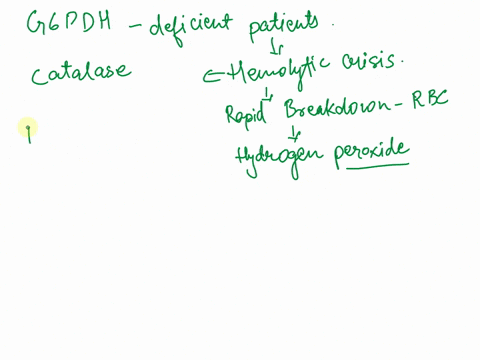 G6PDH - deficient patients.
Catalase
Hemolytic crisis.
Rapid Breakdown - RBC
Hydrogen peroxide